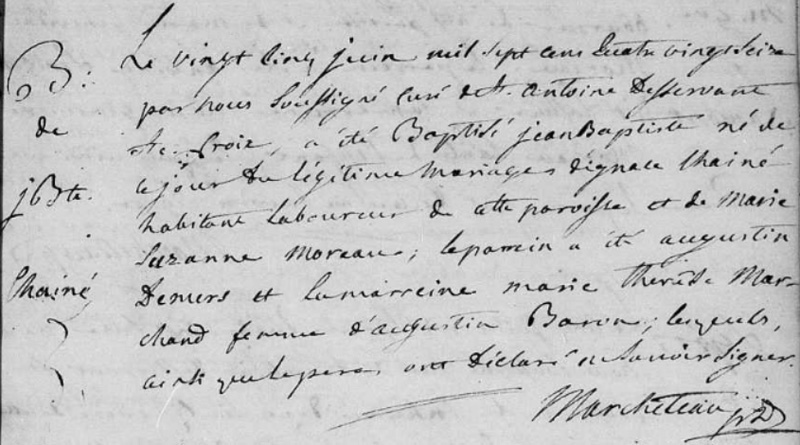 B:
de
jBte.
Chainé
Le vingt cinq juin mil sept cens quatre vingt seize
par nous soussigné curé de St. antoine Desservant
Ste. Croix, a été Baptisé jean Baptiste né de
ce jour du légitime mariage d'ignace Chainé
habitant Laboureur de cette paroisse et de Marie
Suzanne Moreau; le parrein a été augustin
Demers et la marreine marie thérèse Mar-
chand femme d'augustin Baron; lesquels,
ainsi que le pere, ont déclaré ne savoir signer.
Marcheteau ptre